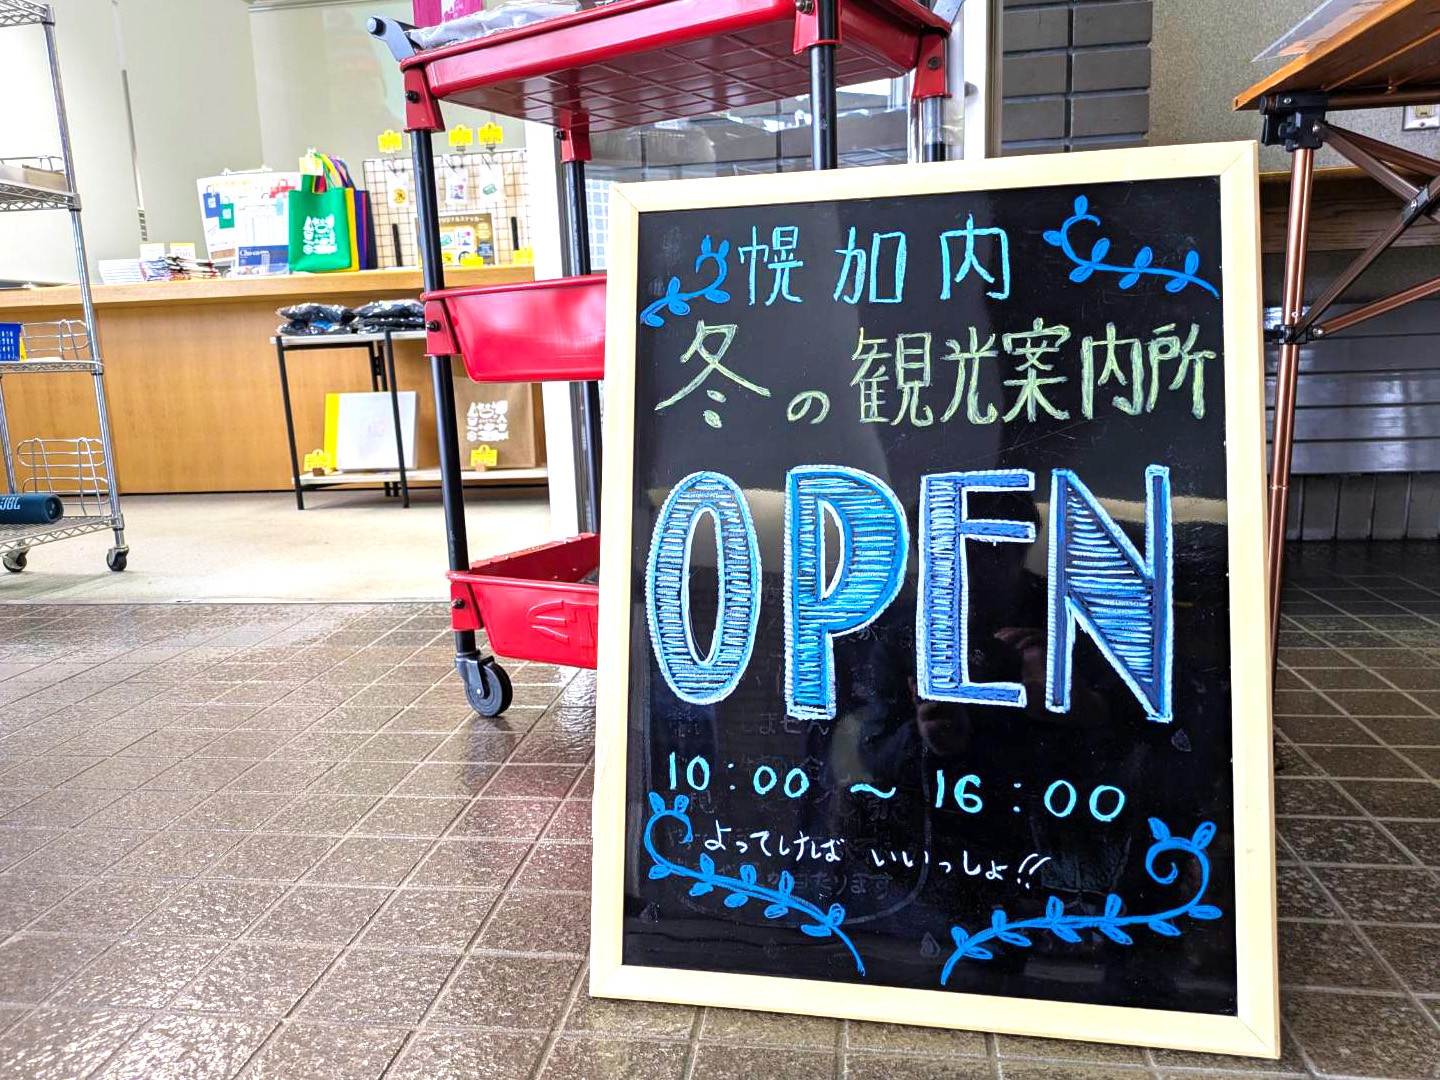 幌加内
冬の観光案内所
OPEN
10:00 〜 16:00
よってけば いいっしょ!!
JBL